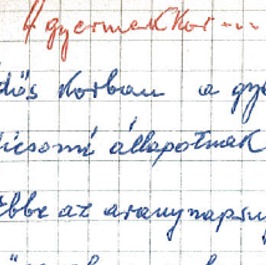 A gyermekkor ...
dős korban a gye
icsomó állapotnak
ebbe az aranynapsug